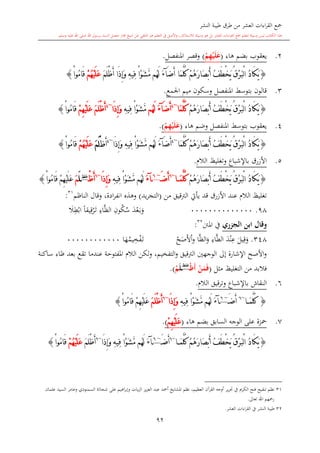 جمع القراءات العشر من طرق طيبة النشر
٢. يعقوب بضم هاء (عَلَيْهُمْ) وقصر المنفصل.
﴿ يَكَادُ ٱلْبَرْقُ يَخْطَفُ أَبْصَٰرَهُمْ كُلَّمَآ أَضَآءَ لَهُم مَّشَوْا۟ فِيهِ وَإِذَآ أَظْلَمَ عَلَيْهُمْ قَامُوا۟ ﴾
٣. قالون بتوسط المنفصل وسكون ميم الجمع.
﴿ يَكَادُ ٱلْبَرْقُ يَخْطَفُ أَبْصَٰرَهُمْ كُلَّمَآ أَضَآءَ لَهُم مَّشَوْا۟ فِيهِ وَإِذَآ أَظْلَمَ عَلَيْهِمْ قَامُوا۟ ﴾
٤. يعقوب بتوسط المنفصل وضم هاء (عَلَيْهُمْ).
﴿ يَكَادُ ٱلْبَرْقُ يَخْطَفُ أَبْصَٰرَهُمْ كُلَّمَآ أَضَآءَ لَهُم مَّشَوْا۟ فِيهِ وَإِذَآ أَظْلَمَ عَلَيْهُمْ قَامُوا۟ ﴾
٥. الأزرق بالإشباع وتغليظ اللام.
﴿ يَكَادُ ٱلْبَرْقُ يَخْطَفُ أَبْصَٰرَهُمْ كُلَّمَآ أَضَآءَ لَهُم مَّشَوْا۟ فِيهِ وَإِذَآ أَظْلَمَ عَلَيْهِمْ قَامُوا۟ ﴾
تغليظ اللام عند الأزرق قد يأتي الترقيق من (التجريد) وهذه انفرادة، وقال الناظم٣١:
٩٨. .............. وَبَعْدَ سُكُونِ الظَّاءِ تَرْقِيقًا ابْطِلَا
وقال ابن الجزري في المتن٣٢:
٣٤٨. وَقِيلَ عِنْدَ الطَّاءِ وَالظَّا وَالأَصَحّْ تَفْخِيمُهَا ...........
والأصح الإشارة إلى الوجهين الترقيق والتفخيم، ولكن اللام المفتوحة عندما تقع بعد ظاء ساكنة
فلابد من التغليظ مثل (فَمَنْ أَظْلَمُ).
٦. النقاش بالإشباع وترقيق اللام.
﴿ كُلَّمَآ أَضَآءَ لَهُم مَّشَوْا۟ فِيهِ وَإِذَآ أَظْلَمَ عَلَيْهِمْ قَامُوا۟ ﴾
٧. حمزة على الوجه السابق بضم هاء (عَلَيْهُمْ).
﴿ يَكَادُ ٱلْبَرْقُ يَخْطَفُ أَبْصَٰرَهُمْ كُلَّمَآ أَضَآءَ لَهُم مَّشَوْا۟ فِيهِ وَإِذَآ أَظْلَمَ عَلَيْهُمْ قَامُوا۟ ﴾
٣١ نظم تنقيح فتح الكريم في تحرير أوجه القرآن العظيم، نظم المشايخ أحمد عبد العزيز الزيات وإبراهيم على شحاتة السمنودي وعامر السيد عثمان.
رحمهم الله تعالى.
٣٢ طيبة النشر في القراءات العشر.
٩٢